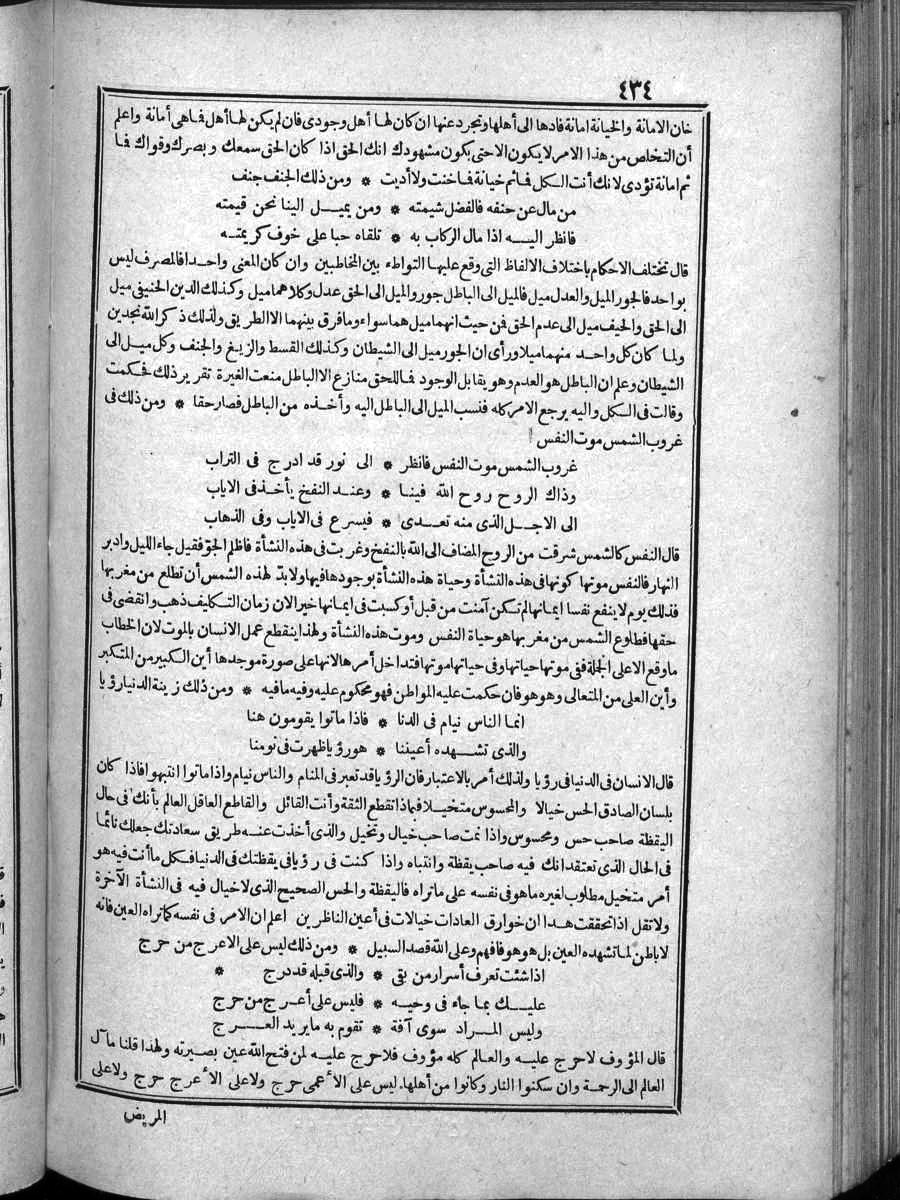 ٤٣٤
خان الامانة والخيانة امانة فادها الى أهلها وتجرد عنها ان كان لها أهل وجودى فان لم يكن لها أهل فاهى أمانة واعلم
أن التخلص من هذا الامر لا يكون الاحتى يكون مشهودك انك الحق اذا كان الحق سمعك وبصرك وقواك فما
ثم امانة تؤدى لانك أنت الكل فاثم خيانة فاخنت ولا أديت * ومن ذلك الجنف جنف
من مال عن حنفه فالفضل شيمته * ومن يميــل الينا نحن قيمته
فانظر اليــه اذا مال الركاب به * تلقاه حبا على خوف كريمتــه
قال تختلف الاحكام باختلاف الالفاظ التى وقع عليها التواطء بين المخاطبين وان كان المعنى واحدا فالمصرف ليس
بواحد فالجور الميل والعدل ميل فالميل الى الباطل جور والميل الى الحق عدل وكلاهما ميل وكذلك الدين الحنيفى ميل
الى الحق والحيف ميل الى عدم الحق فن حيث انهما ميل هما سواء وما فرق بينهما الا الطريق ولذلك ذكر الله نجدين
ولما كان كل واحد منهما ميلا ورأى ان الجور ميل الى الشيطان وكذلك القسط والزيغ والجنف وكل ميل الى
الشيطان وعلم ان الباطل هو العدم وهو يقابل الوجود فاللحق منازع الا الباطل منعت الغيرة تقرير ذلك فحكمت
وقالت فى الكل واليه يرجع الامر كله فنسب الميل الى الباطل اليه وأخذه من الباطل فصار حقا * ومن ذلك فى
غروب الشمس موت النفس
غروب الشمس موت النفس فانظر * الى نور قد ادرج فى التراب
وذاك الروح روح الله فينا * وعند النفخ يأخذ فى الاياب
الى الاجــل الذى منه تعــدى * فيسرع فى الاياب وفى الذهاب
قال النفس كالشمس شرقت من الروح المضاف الى الله بالنفخ وغربت فى هذه النشأة فاظلم الجو فقيل جاء الليل وادبر
النهار فالنفس موتها كونها فى هذه النشأة وحياة هذه النشأة بوجودها فيها ولا بد لهذه الشمس أن تطلع من مغربها
فذلك يوم لا ينفع نفسا ايمانها لم تكن آمنت من قبل أو كسبت فى ايمانها خيرا لان زمان التكليف ذهب وانقضى فى
حقها فطلوع الشمس من مغربها هو حياة النفس وموت هذه النشأة ولهذا ينقطع عمل الانسان بالموت لان الخطاب
ما وقع الاعلى الجملة ففى موتها حياتها وفى حياتها موتها فتداخل أمرها لانها على صورة موجدها أين الكبير من المتكبر
وأين العلى من المتعالى وهو هو فان حكمت عليه المواطن فهو محكوم عليه وفيه ما فيه * ومن ذلك زينة الدنيا رؤيا
انما الناس نيام فى الدنا * فاذا ماتوا يقومون هنا
والذى تشــهده أعيننا * هو رؤيا ظهرت فى نومنا
قال الانسان فى الدنيا فى رؤيا ولذلك أمر بالاعتبار فان الرؤيا قد تعبر فى المنام والناس نيام واذا ماتوا انتبهوا فاذا كان
بلسان الصادق الحس خيالا والمحسوس متخيلا فبماذا تقطع الثقة وأنت القائل والقاطع العاقل العالم بأنك فى حال
اليقظة صاحب حس ومحسوس واذا نمت صاحب خيال وتخيل والذى أخذت عنــه طريق سعادتك جعلك نائما
فى الحال الذى تعتقد انك فيه صاحب يقظة وانتباه واذا كنت فى رؤيا فى يقظتك فى الدنيا فكل ما أنت فيه هو
أمر متخيل مطلوب لغيره ما هو فى نفسه على ما تراه فاليقظة والحس الصحيح الذى لا خيال فيه فى النشأة الآخرة
ولا تقل اذا تحققت هــذا ان خوارق العادات خيالات فى أعين الناظرين اعلم ان الامر فى نفسه كما تراه العين فانه
لا باطن لما تشهده العين بل هو هو فافهم وعلى الله قصد السبيل * ومن ذلك ليس على الاعرج من حرج
اذا شئت تعرف أسرار من بقى * والذى قبله قد درج *
عليــك بما جاء فى وحيــه * فليس على أعــرج من حرج
وليس المــراد سوى آفة * تقوم به ما يريد العــرج
قال المؤوف لا حرج عليــه والعالم كله مؤوف فلا حرج عليــه لمن فتح الله عين بصيرته ولهذا قلنا مآل
العالم الى الرحمــة وان سكنوا النار وكانوا من أهلها ليس على الأعمى حرج ولا على الأعرج حرج ولا على
المريض